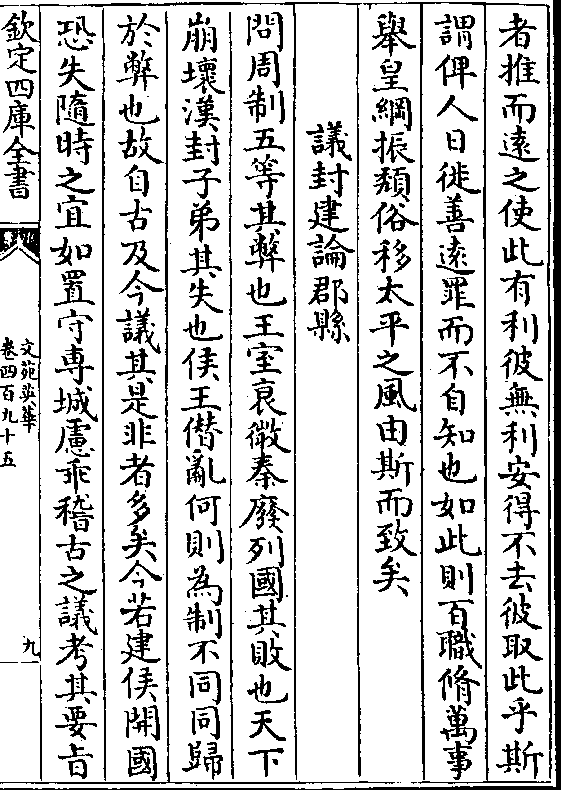 者推而遠之使此有利彼無利安得不去彼取此乎斯
謂俾人日徙善遠罪而不自知也如此則百職脩萬事
舉皇綱振頽俗移太平之風由斯而致矣
議封建論郡縣
問周制五等其弊也王室衰微秦廢列國其敗也天下
崩壞漢封子弟其失也侯王僣亂何則為制不同同歸
於弊也故自古及今議其是非者多矣今若建侯開國
恐失隨時之宜如置守専城慮乖稽古之議考其要㫖
欽定四庫全書
文苑英華
卷四百九十五
九